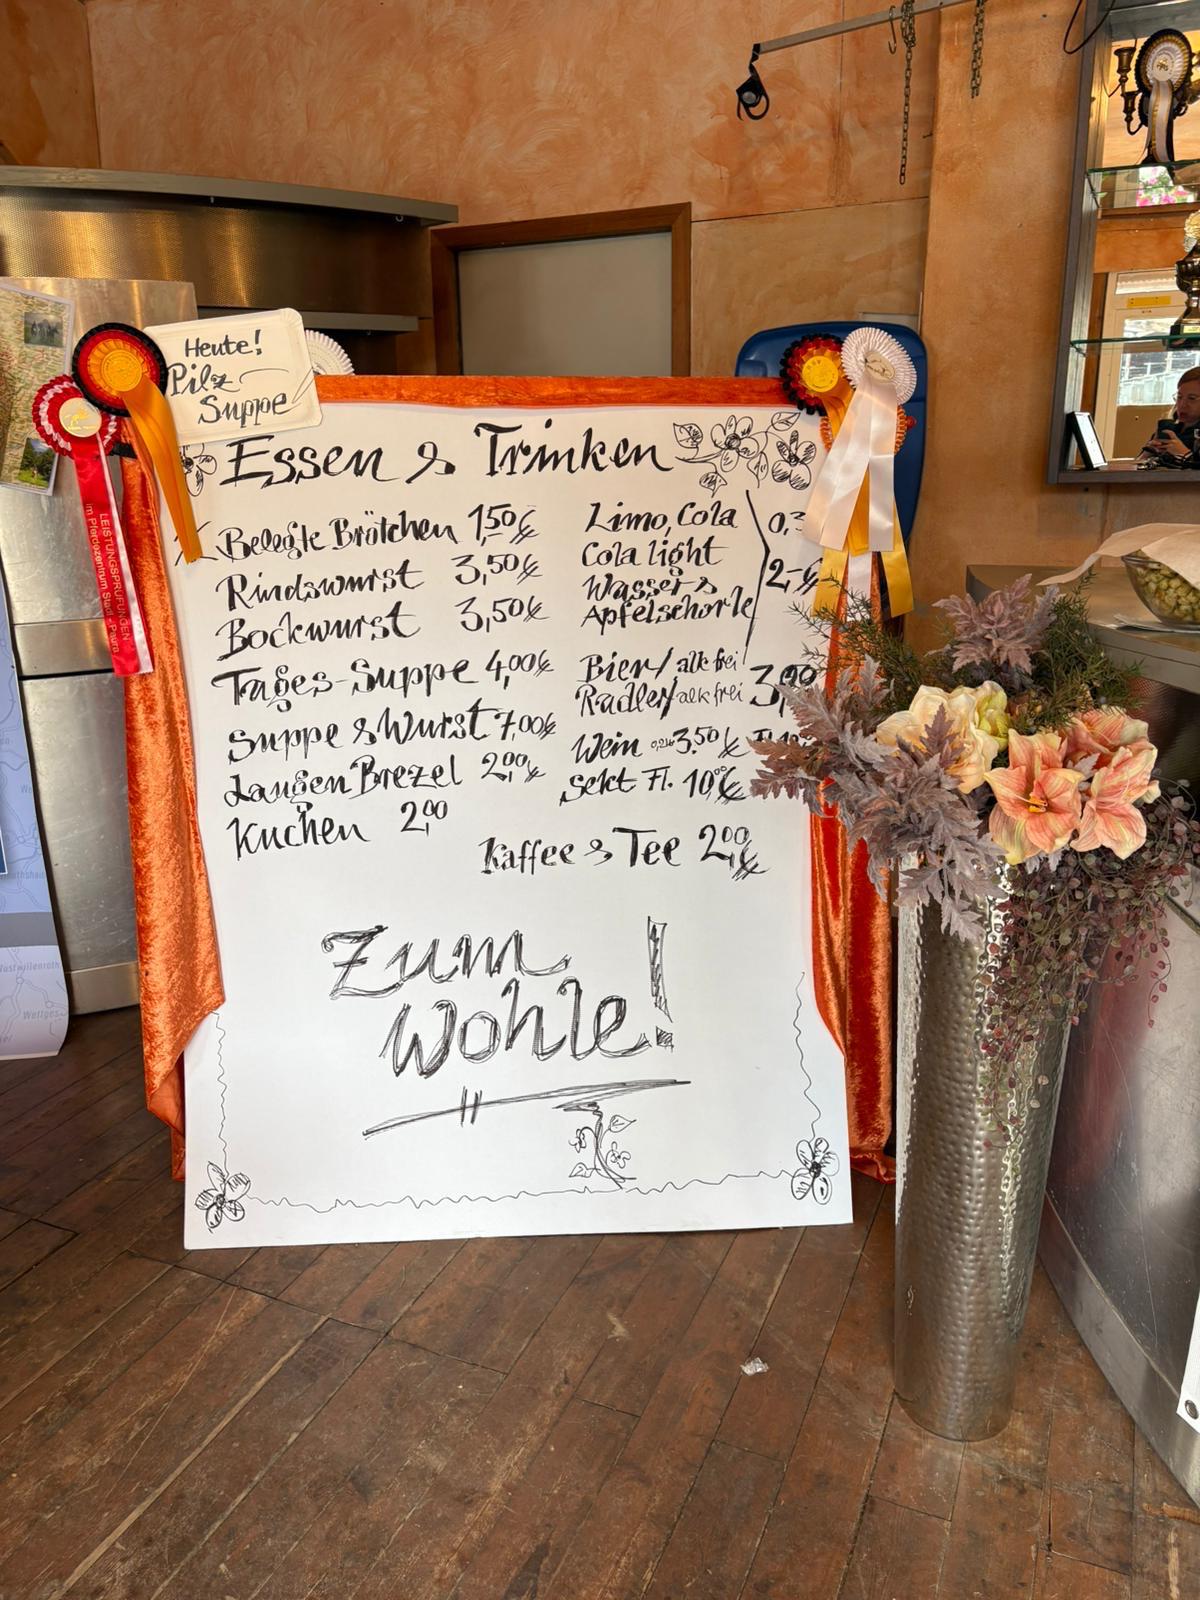 Heute!
Pilz
Suppe
Essen & Trinken
Belegte Brötchen 1,50 €
Rindswurst 3,50 €
Bockwurst 3,50 €
Tages-Suppe 4,00 €
Suppe & Wurst 7,00 €
Laugen Brezel 2,00 €
Kuchen 2,00
Limo, Cola
Cola light
Wasser &
Apfelschorle
0,3
2,- €
Bier/ alk frei
Radler/ alk frei
Wein 3,50 €
Sekt Fl. 10,00 €
Kaffee & Tee 2,00 €
Zum
Wohle!
LEISTUNGSPRÜFUNGEN
im Pferdezentrum Stadl-Paura